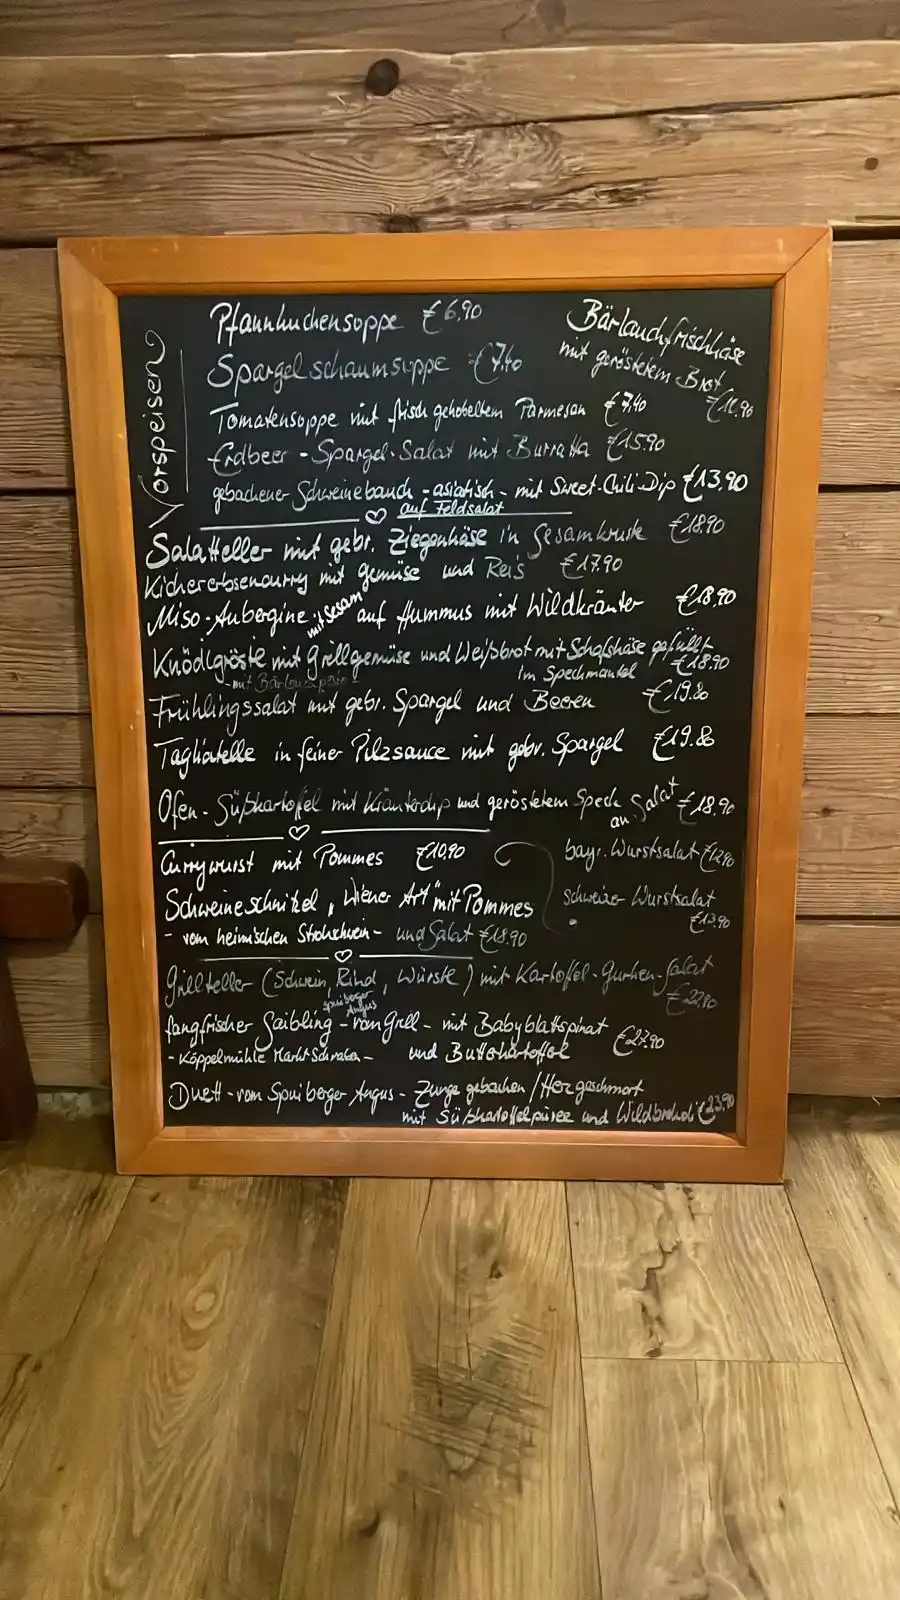 Vorspeisen
Pfannkuchensuppe €6,90
Spargelschaumsuppe €7,40
Tomatensuppe mit frisch gehobeltem Parmesan €7,40
Erdbeer-Spargel-Salat mit Burratta €15.90
gebackener Schweinebauch -asiatisch- mit Sweet-Chili Dip €13,90
auf Feldsalat
Bärlauchfrischkäse
mit geröstetem Brot
€10,90
Salatteller mit gebr. Ziegenkäse in Sesamkruste €18,90
Kichererbsencurry mit Gemüse und Reis €17.90
Miso-Aubergine mit Sesam auf Hummus mit Wildkräuter €18,90
Knödlgröstl mit Grillgemüse und Weißbrot mit Schafskäse gefüllt
im Speckmantel €18.90
-mit
Frühlingssalat mit gebr. Spargel und Beeren €19.80
Tagliatelle in feiner Pilzsauce mit gebr. Spargel €19.80
Ofen-Süßkartoffel mit Kräuterdip und geröstetem Speck an Salat €18,90
Currywurst mit Pommes €10,90
Schweineschnitzel "Wiener Art" mit Pommes
- vom heimischen Strohschwein- und Salat €18.90
bayr. Wurstsalat €12,90
schweizer Wurstsalat
€13.90
Grillteller (Schwein, Rind, Würstl) mit Kartoffel-Gurken-Salat
Angus
€22,90
fangfrischer Saibling -vom Grill- mit Babyblattspinat
- Köppelmühle Markt Schwaben- und Butterkartoffel €27.90
Duett -vom Spuiberger Angus- Zunge gebacken/Herz geschmort
mit Süßkartoffelpüree und Wildbrokoli €23,90